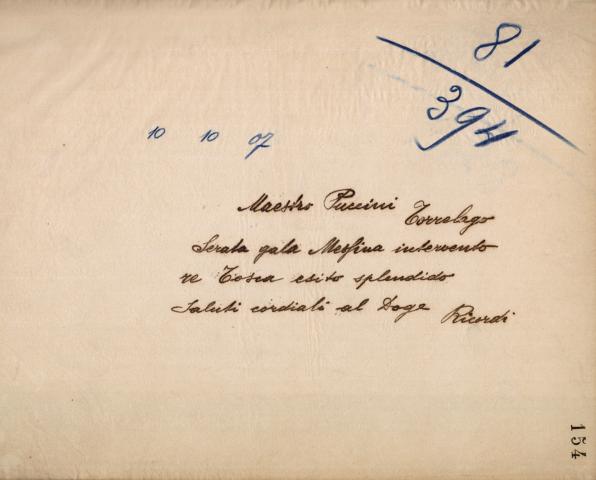 81
394
10 10 07
Maestro Puccini Torrelago
Serata gala Messina intervento
re Tosca esito splendido
Saluti cordiali al Doge
Ricordi
154